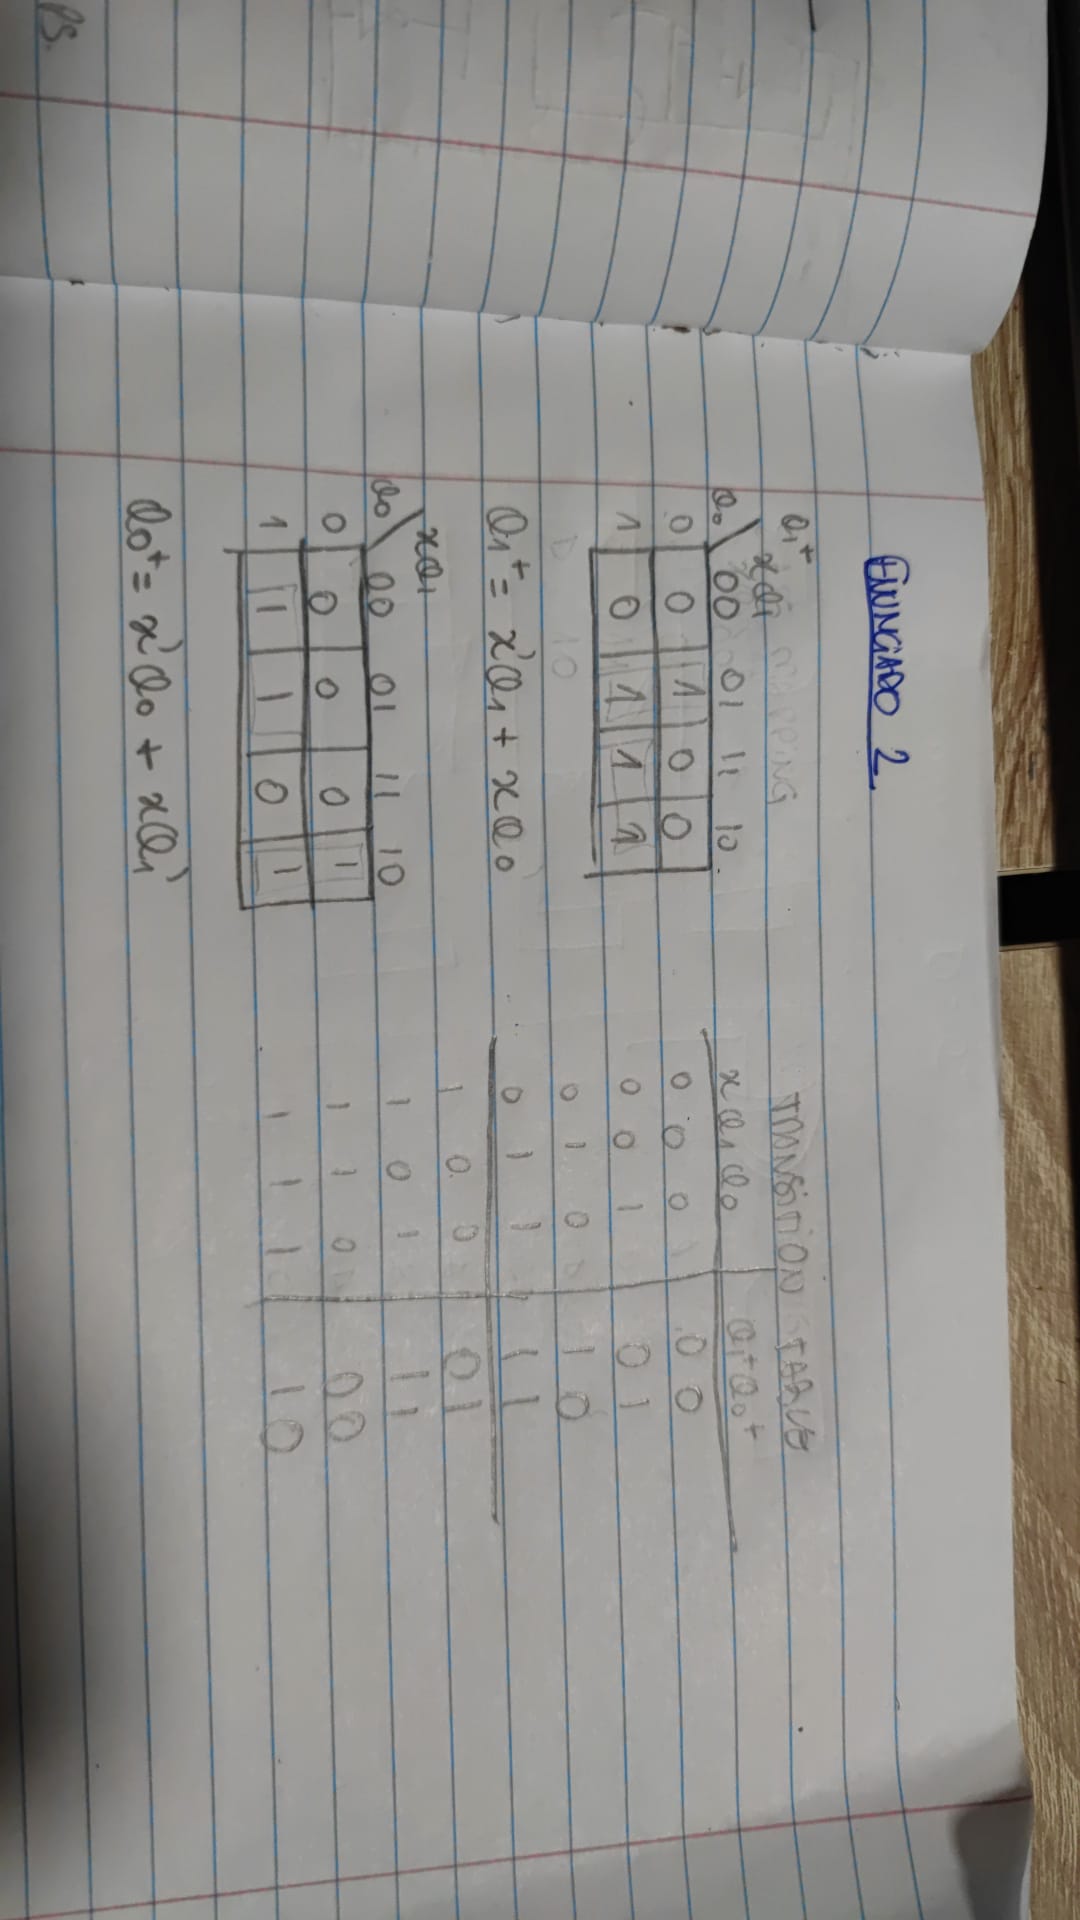 ENUNCIADO 2
Q1+
xQ1 MAPPING
Q0 00 01 11 10
0 0 1 0 0
1 0 1 1 1
D 10
Q1+ = x'Q1 + xQ0
xQ1
Q0 00 01 11 10
0 0 0 0 1
1 1 1 0 1
Q0+ = x'Q0 + xQ1'
TRANSITION TABLE
x Q1 Q0 Q1+ Q0+
0 0 0 0 0
0 0 1 0 1
0 1 0 1 0
0 1 1 1 1
1 0 0 0 1
1 0 1 1 1
1 1 0 0 0
1 1 1 1 0
PS.